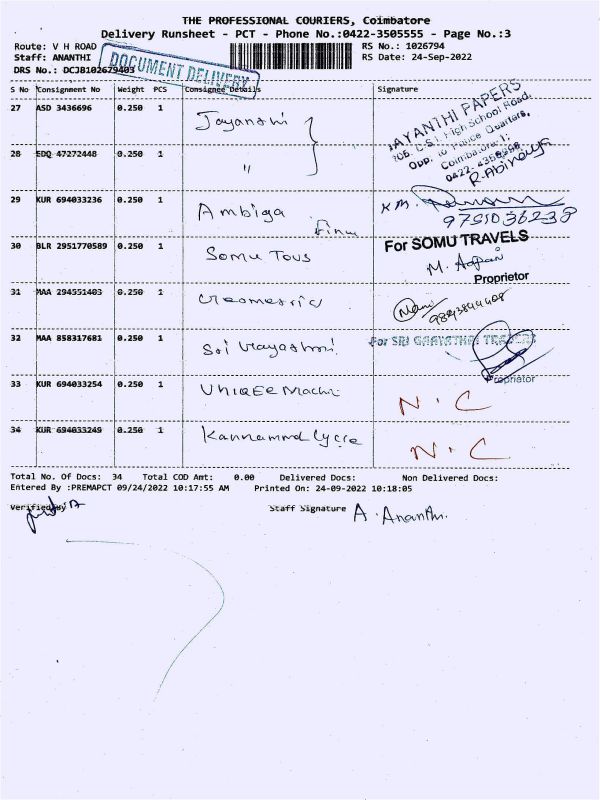 THE PROFESSIONAL COURIERS, Coimbatore
Delivery Runsheet - PCT - Phone No.:0422-3505555 - Page No.:3
Route: V H ROAD
RS No.: 1026794
Staff: ANANTHI
RS Date: 24-Sep-2022
DRS No.: DCJB102679403
DOCUMENT DELIVERY
S No Consignment No Weight PCS Consignee Details Signature
27 ASD 3436696 0.250 1 Jayanthi
JAYANTHI PAPERS
C.S.I. High School Road,
Opp. to Police Quarters,
28 EDQ 47272448 0.250 1 "
R. Abinaya
29 KUR 694033236 0.250 1 Ambiga
30 BLR 2951770589 0.250 1 Somu Tous
For SOMU TRAVELS
Proprietor
31 MAA 294551403 0.250 1
Mani
32 MAA 858317681 0.250 1 Sri
For SRI
Proprietor
33 KUR 694033254 0.250 1 N.C
34 KUR 694033249 0.250 1 N.C
Total No. Of Docs: 34 Total COD Amt: 0.00 Delivered Docs: Non Delivered Docs:
Entered By :PREMAPCT 09/24/2022 10:17:55 AM Printed On: 24-09-2022 10:18:05
Verified By Staff Signature A. Ananthi.